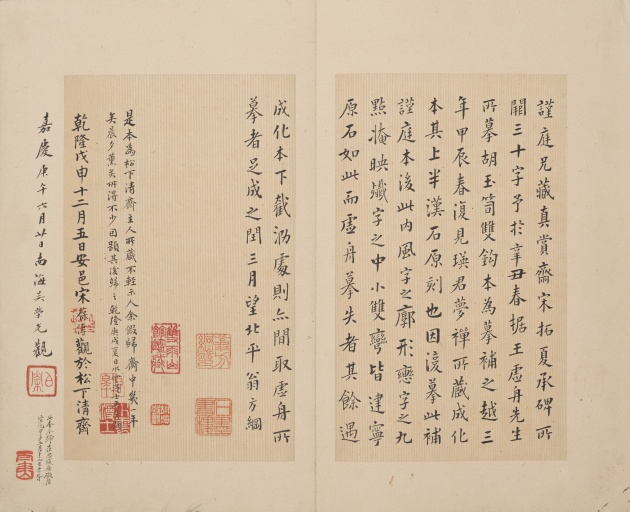 謹庭兄藏真賞齋宋拓夏承碑所
闕三十字予於辛丑春据王虛舟先生
所摹胡玉笥雙鈎本為摹補之越三
年甲辰春復見瑛君夢禪所藏成化
本其上半漢石原刻也因復摹此補
謹庭本後此內風字之廓形戀字之九
點掩映爵字之中小雙彎皆建寧
原石如此而虛舟摹失者其餘遇
成化本下截泐處則亦間取虛舟所
摹者足成之閏三月望北平翁方綱
是本為松下清齋主人所藏不輕示人余假歸齋中幾一年
矣晨夕薰
得不少因題其後歸之乾隆庚戌夏日
乾隆戊申十二月五日安邑宋葆惇觀於松下清齋
嘉慶庚午六月廿日南海吳榮光觀